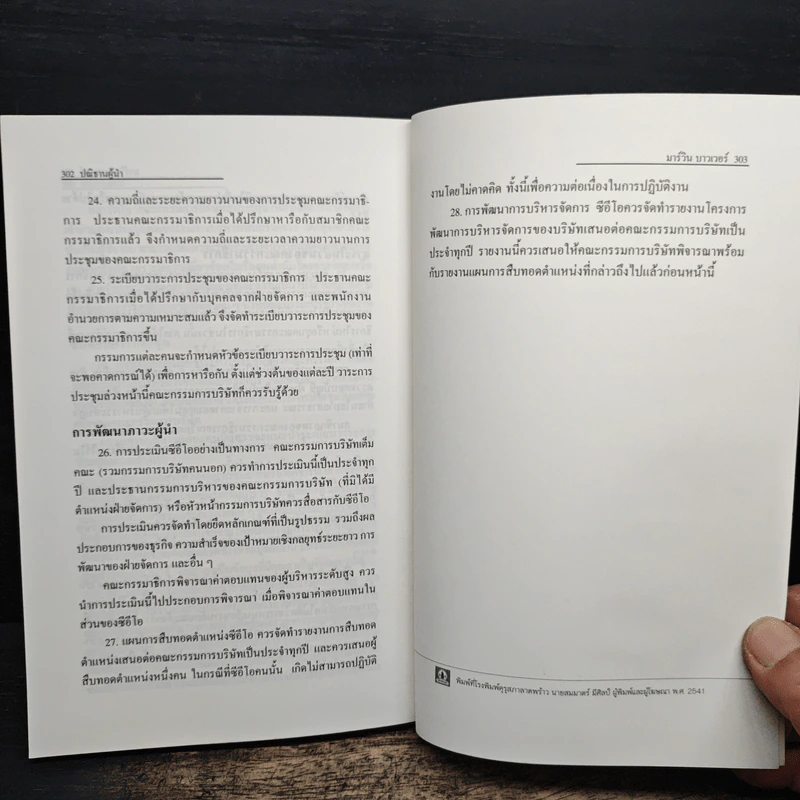 302 ปณิธานผู้นำ
24. ความถี่และระยะความยาวนานของการประชุมคณะกรรมาธิ-
การ ประธานคณะกรรมาธิการเมื่อได้ปรึกษาหารือกับสมาชิกคณะ
กรรมาธิการแล้ว จึงกำหนดความถี่และระยะเวลาความยาวนานการ
ประชุมของคณะกรรมาธิการ
25. ระเบียบวาระการประชุมของคณะกรรมาธิการ ประธานคณะ
กรรมาธิการเมื่อได้ปรึกษากับบุคคลจากฝ่ายจัดการ และพนักงาน
อำนวยการตามความเหมาะสมแล้ว จึงจัดทำระเบียบวาระการประชุมของ
คณะกรรมาธิการขึ้น
กรรมการแต่ละคนจะกำหนดหัวข้อระเบียบวาระการประชุม (เท่าที่
จะพอคาดการณ์ได้) เพื่อการหารือกัน ตั้งแต่ช่วงต้นของแต่ละปี วาระการ
ประชุมล่วงหน้านี้คณะกรรมการบริษัทก็ควรรับรู้ด้วย
การพัฒนาภาวะผู้นำ
26. การประเมินซีอีโออย่างเป็นทางการ คณะกรรมการบริษัทเต็ม
คณะ (รวมกรรมการบริษัทคนนอก) ควรทำการประเมินนี้เป็นประจำทุก
ปี และประธานกรรมการบริหารของคณะกรรมการบริษัท (ที่มิได้มี
ตำแหน่งฝ่ายจัดการ) หรือหัวหน้ากรรมการบริษัทควรสื่อสารกับซีอีโอ
การประเมินควรจัดทำโดยยึดหลักเกณฑ์ที่เป็นรูปธรรม รวมถึงผล
ประกอบการของธุรกิจ ความสำเร็จของเป้าหมายเชิงกลยุทธ์ระยะยาว การ
พัฒนาของฝ่ายจัดการ และอื่น ๆ
คณะกรรมาธิการพิจารณาค่าตอบแทนของผู้บริหารระดับสูง ควร
นำการประเมินนี้ไปประกอบการพิจารณา เมื่อพิจารณาค่าตอบแทนใน
ส่วนของซีอีโอ
27. แผนการสืบทอดตำแหน่งซีอีโอ ควรจัดทำรายงานการสืบทอด
ตำแหน่งเสนอต่อคณะกรรมการบริษัทเป็นประจำทุกปี และควรเสนอผู้
สืบทอดตำแหน่งหนึ่งคน ในกรณีที่ซีอีโอคนนั้น เกิดไม่สามารถปฏิบัติ
มาร์วิน บาวเวอร์ 303
งานโดยไม่คาดคิด ทั้งนี้เพื่อความต่อเนื่องในการปฏิบัติงาน
28. การพัฒนาการบริหารจัดการ ซีอีโอควรจัดทำรายงานโครงการ
พัฒนาการบริหารจัดการของบริษัทเสนอต่อคณะกรรมการบริษัทเป็น
ประจำทุกปี รายงานนี้ควรเสนอให้คณะกรรมการบริษัทพิจารณาพร้อม
กับรายงานแผนการสืบทอดตำแหน่งที่กล่าวถึงไปแล้วก่อนหน้านี้
พิมพ์ที่โรงพิมพ์คุรุสภาลาดพร้าว นายสมมาตร์ มีศิลป์ ผู้พิมพ์และผู้โฆษณา พ.ศ. 2541